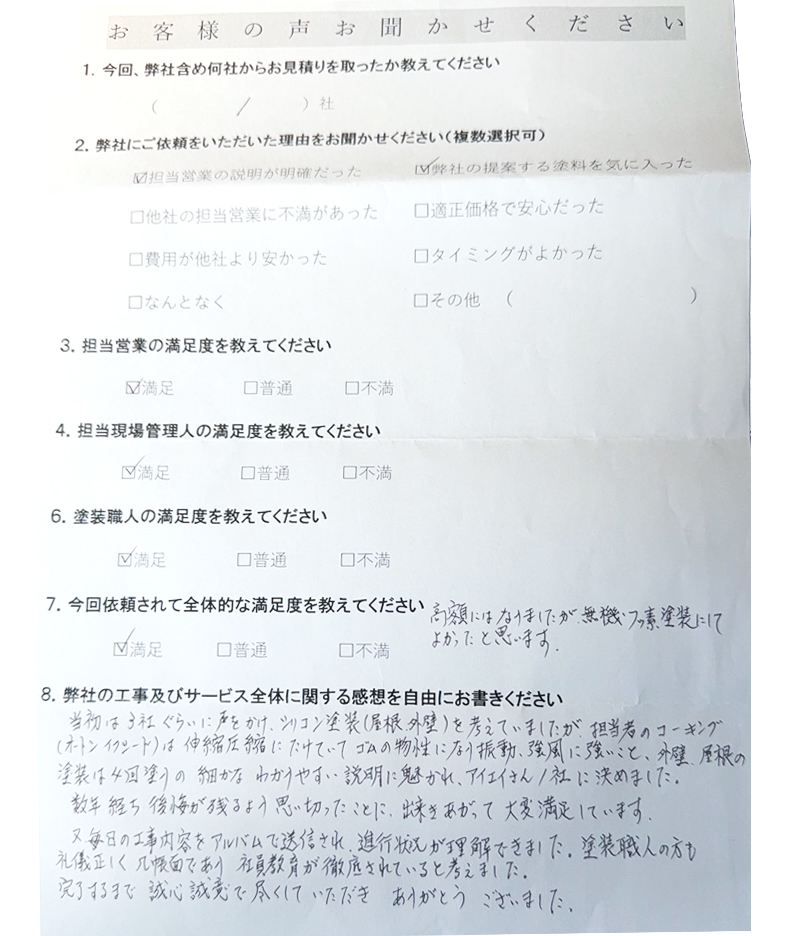 お客様の声お聞かせください
1. 今回、弊社含め何社からお見積りを取ったか教えてください
( / )社
2. 弊社にご依頼をいただいた理由をお聞かせください(複数選択可)
☑担当営業の説明が明確だった ☑弊社の提案する塗料を気に入った
□他社の担当営業に不満があった □適正価格で安心だった
□費用が他社より安かった □タイミングがよかった
□なんとなく □その他 ( )
3. 担当営業の満足度を教えてください
☑満足 □普通 □不満
4. 担当現場管理人の満足度を教えてください
☑満足 □普通 □不満
6. 塗装職人の満足度を教えてください
☑満足 □普通 □不満
7. 今回依頼されて全体的な満足度を教えてください
☑満足 □普通 □不満
高額にはなりましたが、無機・フッ素塗装にして
よかったと思います。
8. 弊社の工事及びサービス全体に関する感想を自由にお書きください
当初は3社ぐらいに声をかけ、シリコン塗装(屋根、外壁)を考えていましたが、担当者のコーキング
(オートンイクシード)は伸縮圧縮にたけていてゴムの物性になり振動、強風に強いこと、外壁、屋根の
塗装は4回塗りの細かなわかりやすい説明に魅かれ、アイエイさん1社に決めました。
数年経ち後悔が残るよう思い切ったことに、出来きあがって大変満足しています。
又毎日の工事内容をアルバムで送信され、進行状況が理解できました。塗装職人の方も
礼儀正しく几帳面であり社員教育が徹底されていると考えました。
完了するまで誠心誠意で尽くしていただきありがとうございました。